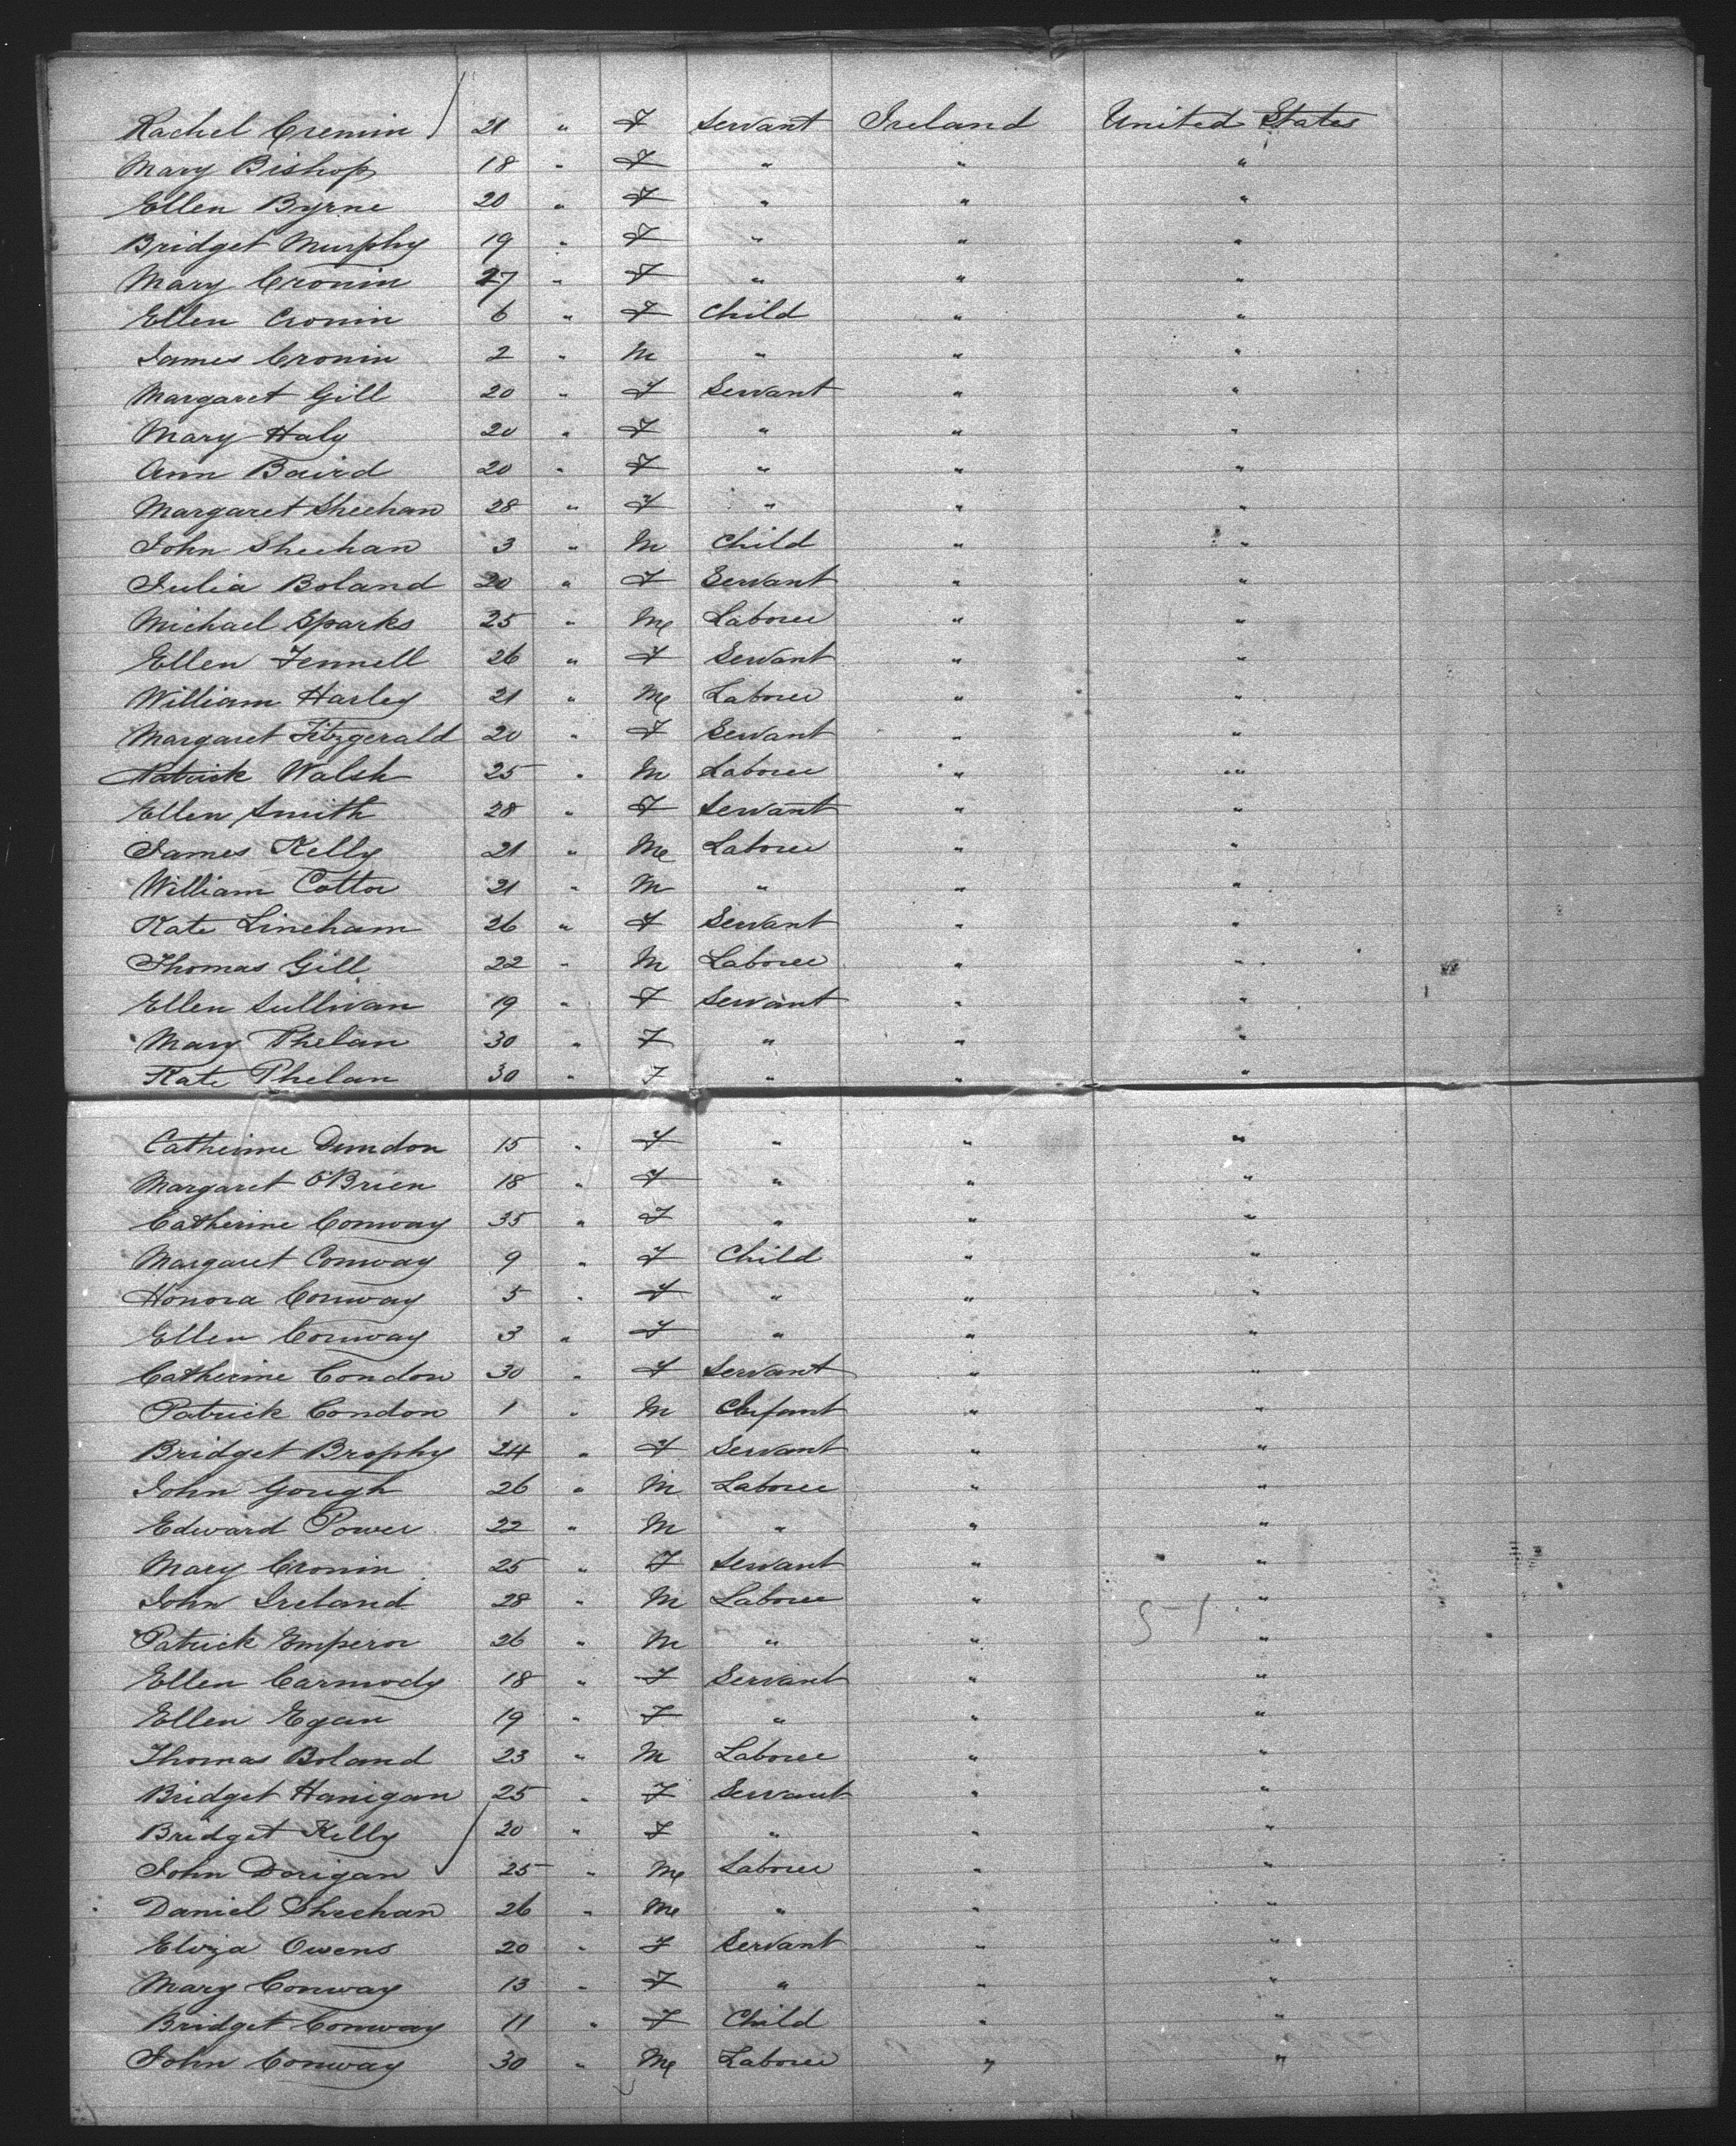 Rachel Cremin 21 " F Servant Ireland United States
Mary Bishop 18 " F " " "
Ellen Byrne 20 " F " " "
Bridget Murphy 19 " F " " "
Mary Cronin 27 " F " " "
Ellen Cronin 6 " F Child " "
James Cronin 2 " M " " "
Margaret Gill 20 " F Servant " "
Mary Haly 20 " F " " "
Ann Baird 20 " F " " "
Margaret Sheehan 28 " F " " "
John Sheehan 3 " M Child " "
Julia Boland 20 " F Servant " "
Michael Sparks 25 " M Laborer " "
Ellen Fennell 26 " F Servant " "
William Harley 21 " M Laborer " "
Margaret Fitzgerald 20 " F Servant " "
Patrick Walsh 25 " M Laborer " "
Ellen Smith 28 " F Servant " "
James Kelly 21 " M Laborer " "
William Cottor 21 " M " " "
Kate Lineham 26 " F Servant " "
Thomas Gill 22 " M Laborer " "
Ellen Sullivan 19 " F Servant " "
Mary Phelan 30 " F " " "
Kate Phelan 30 " F " " "
Catherine Dundon 15 " F " " "
Margaret O'Brien 18 " F " " "
Catherine Conway 35 " F " " "
Margaret Conway 9 " F Child " "
Honora Conway 5 " F " " "
Ellen Conway 3 " F " " "
Catherine Condon 30 " F Servant " "
Patrick Condon 1 " M Infant " "
Bridget Brophy 24 " F Servant " "
John Gough 26 " M Laborer " "
Edward Power 22 " M " " "
Mary Cronin 25 " F Servant " "
John Ireland 28 " M Laborer " "
Patrick Emperor 26 " M " " "
51
Ellen Carmody 18 " F Servant " "
Ellen Egan 19 " F " " "
Thomas Boland 23 " M Laborer " "
Bridget Hanigan 25 " F Servant " "
Bridget Kelly 20 " F " " "
John Dorigan 25 " M Laborer " "
Daniel Sheehan 26 " M " " "
Eliza Owens 20 " F Servant " "
Mary Conway 13 " F " " "
Bridget Conway 11 " F Child " "
John Conway 30 " M Laborer " "